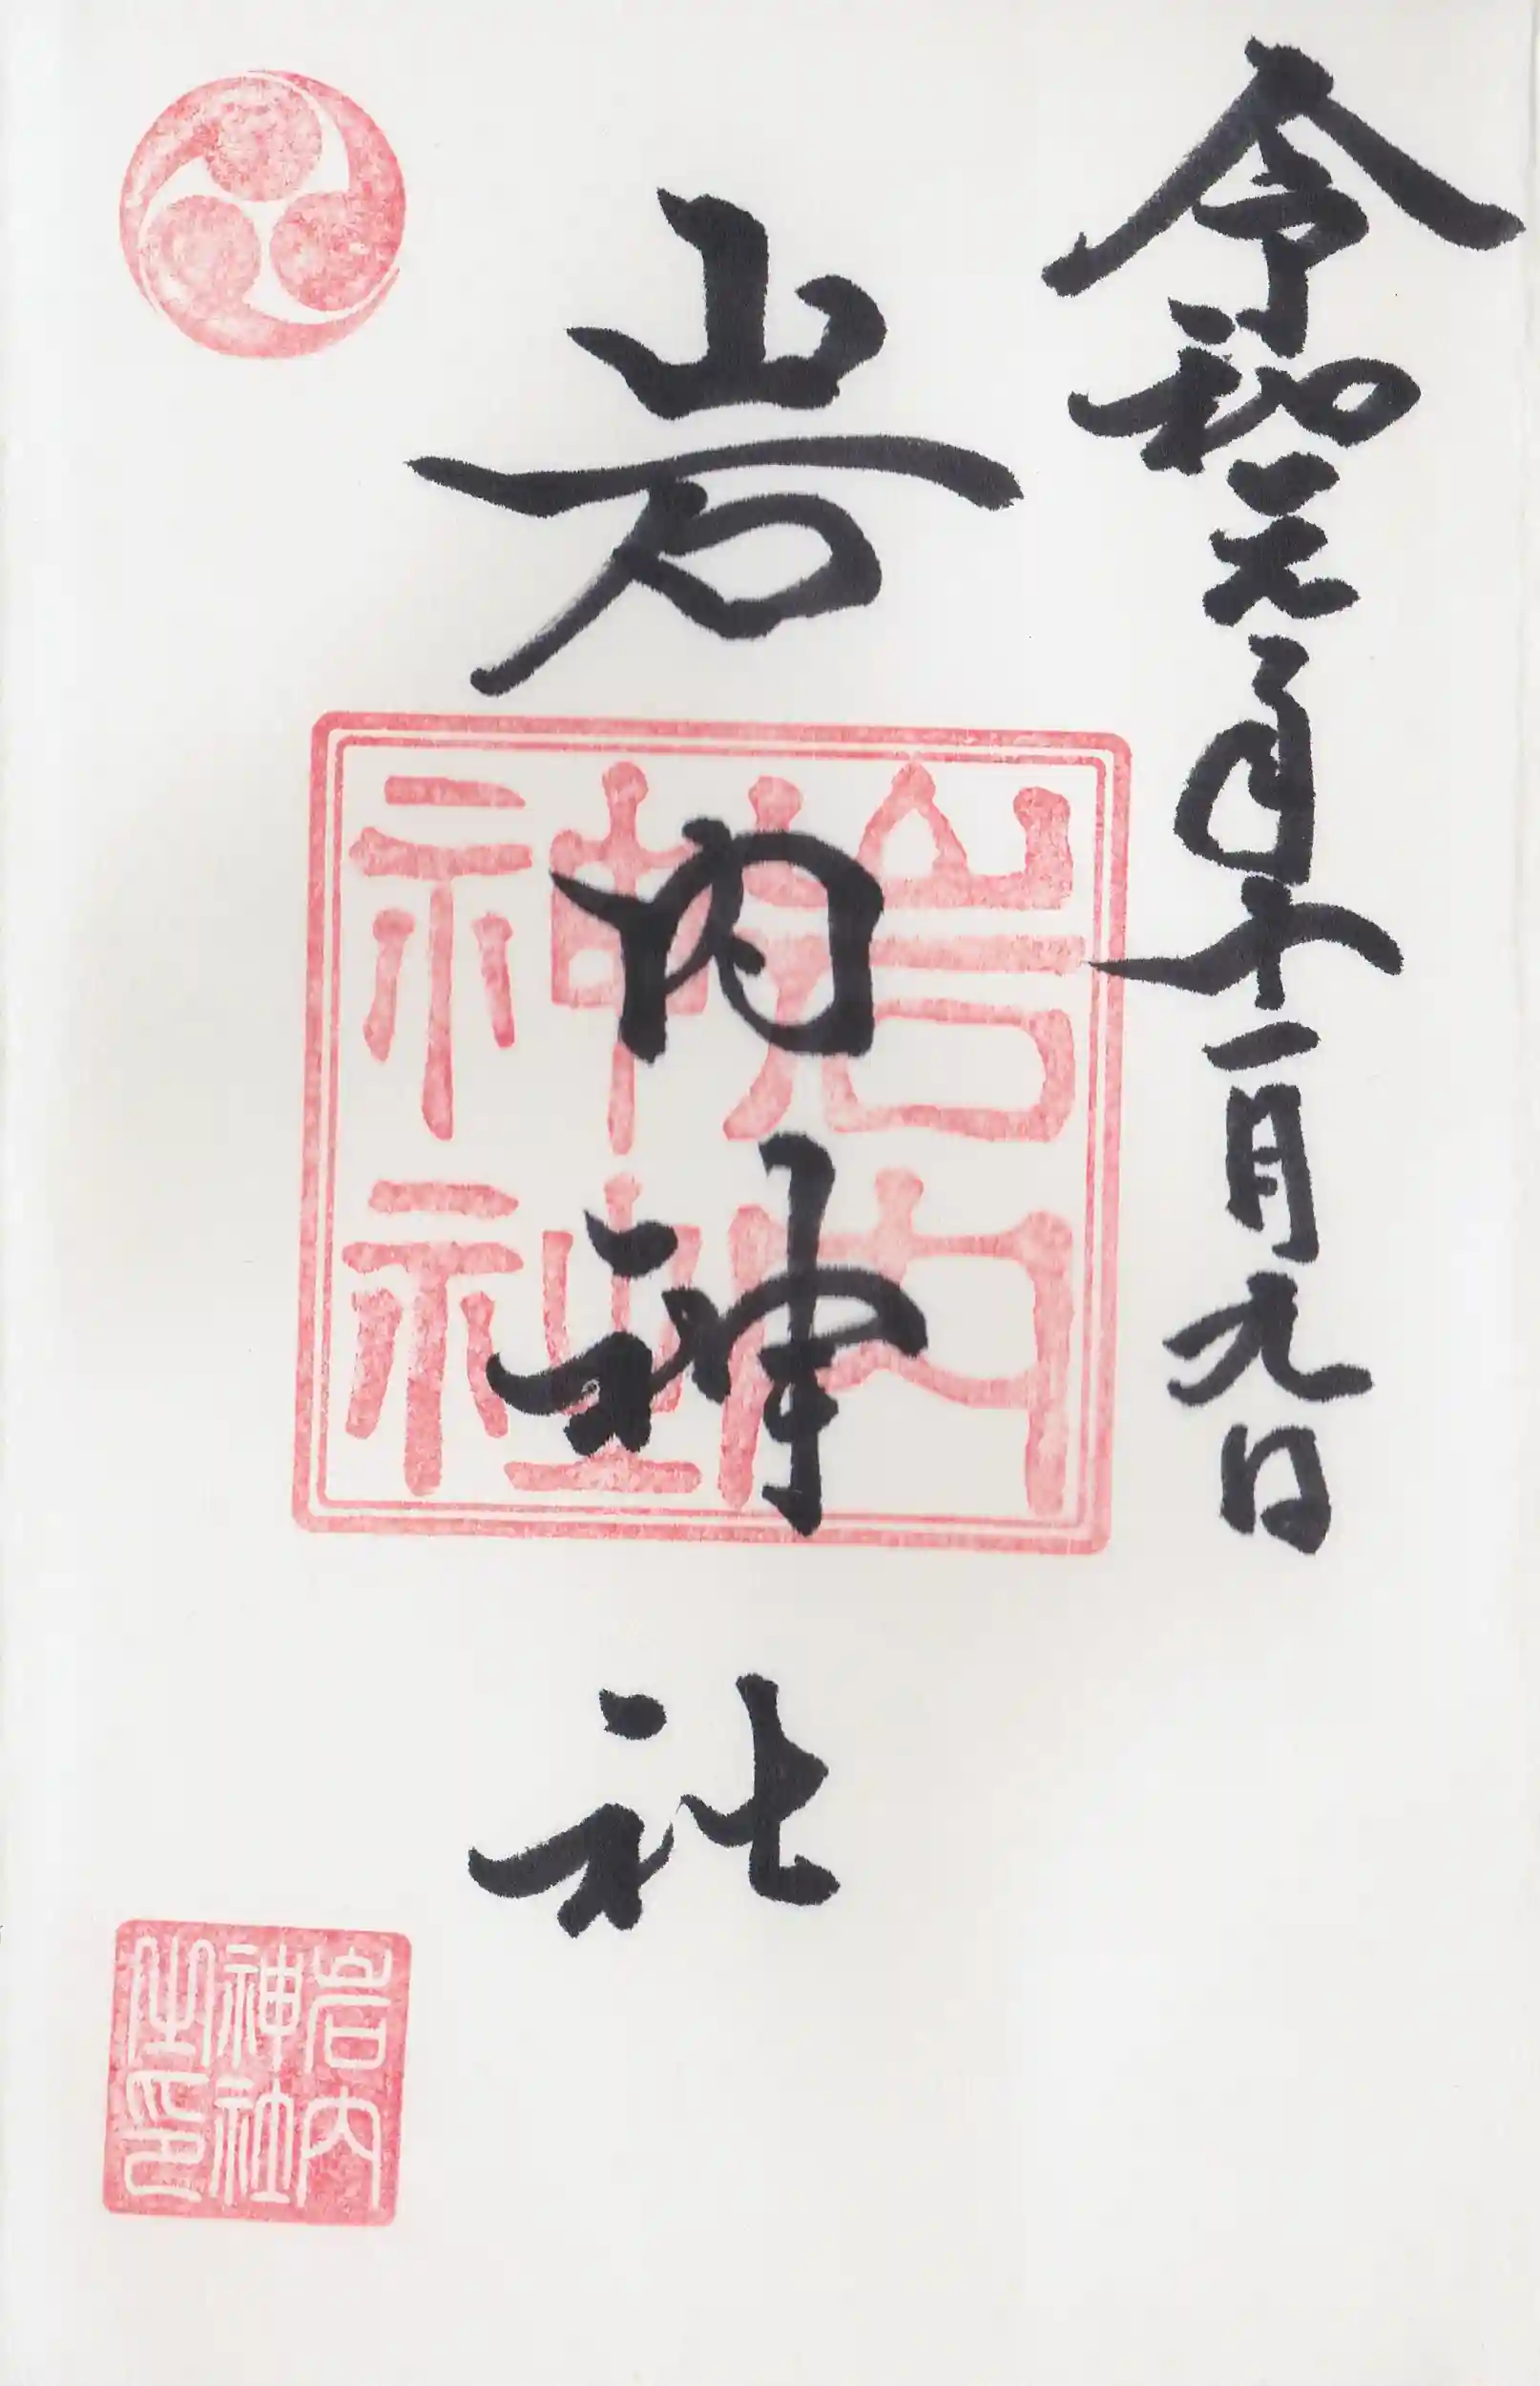 令和元年十一月九日
岩内神社
岩内
神社
岩内
神社
之印